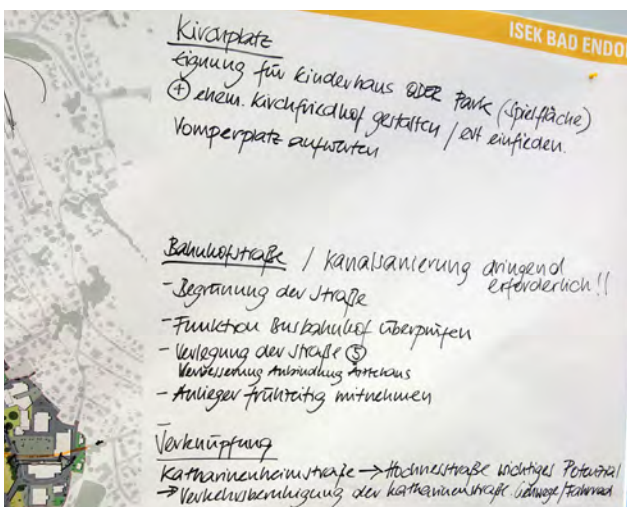 ISEK BAD ENDO
Kirchplatz
Eignung für Kinderhaus ODER Park (Spielfläche)
+ ehem. Kirchfriedhof gestalten / evt einfrieden.
Vomperplatz aufwerten
Bahnhofstraße / Kanalsanierung dringend
erforderlich!!
- Begrünung der Straße
- Funktion Busbahnhof überprüfen
- Verlegung der Straße 5
Verbesserung Anbindung
- Anlieger frühzeitig mitnehmen
Verknüpfung
Katharinenheimstraße → Hochriesstraße wichtiges Potenzial
→ Verkehrsberuhigung der Katharinenstraße. Gehwege/Fahrrad